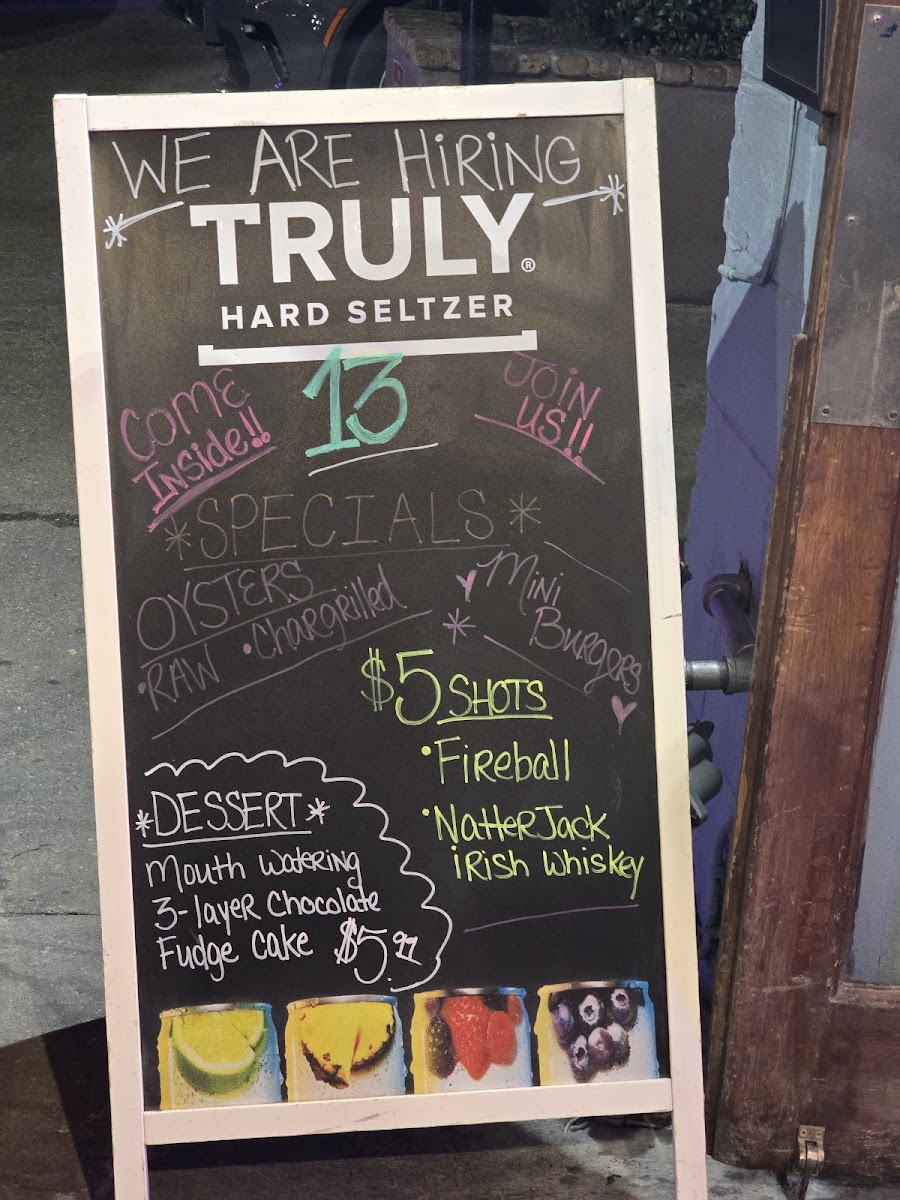 WE ARE HiRiNG
TRULY®
HARD SELTZER
13
COME
INSide!!
JOiN
US!!
*SPECIALS*
OYSTERS
•RAW •Chargrilled
Mini
Burgers
$5 SHOTS
•FiReball
•NatterJack
iRish Whiskey
*DESSERT*
Mouth Watering
3-layer Chocolate
Fudge Cake $5.99